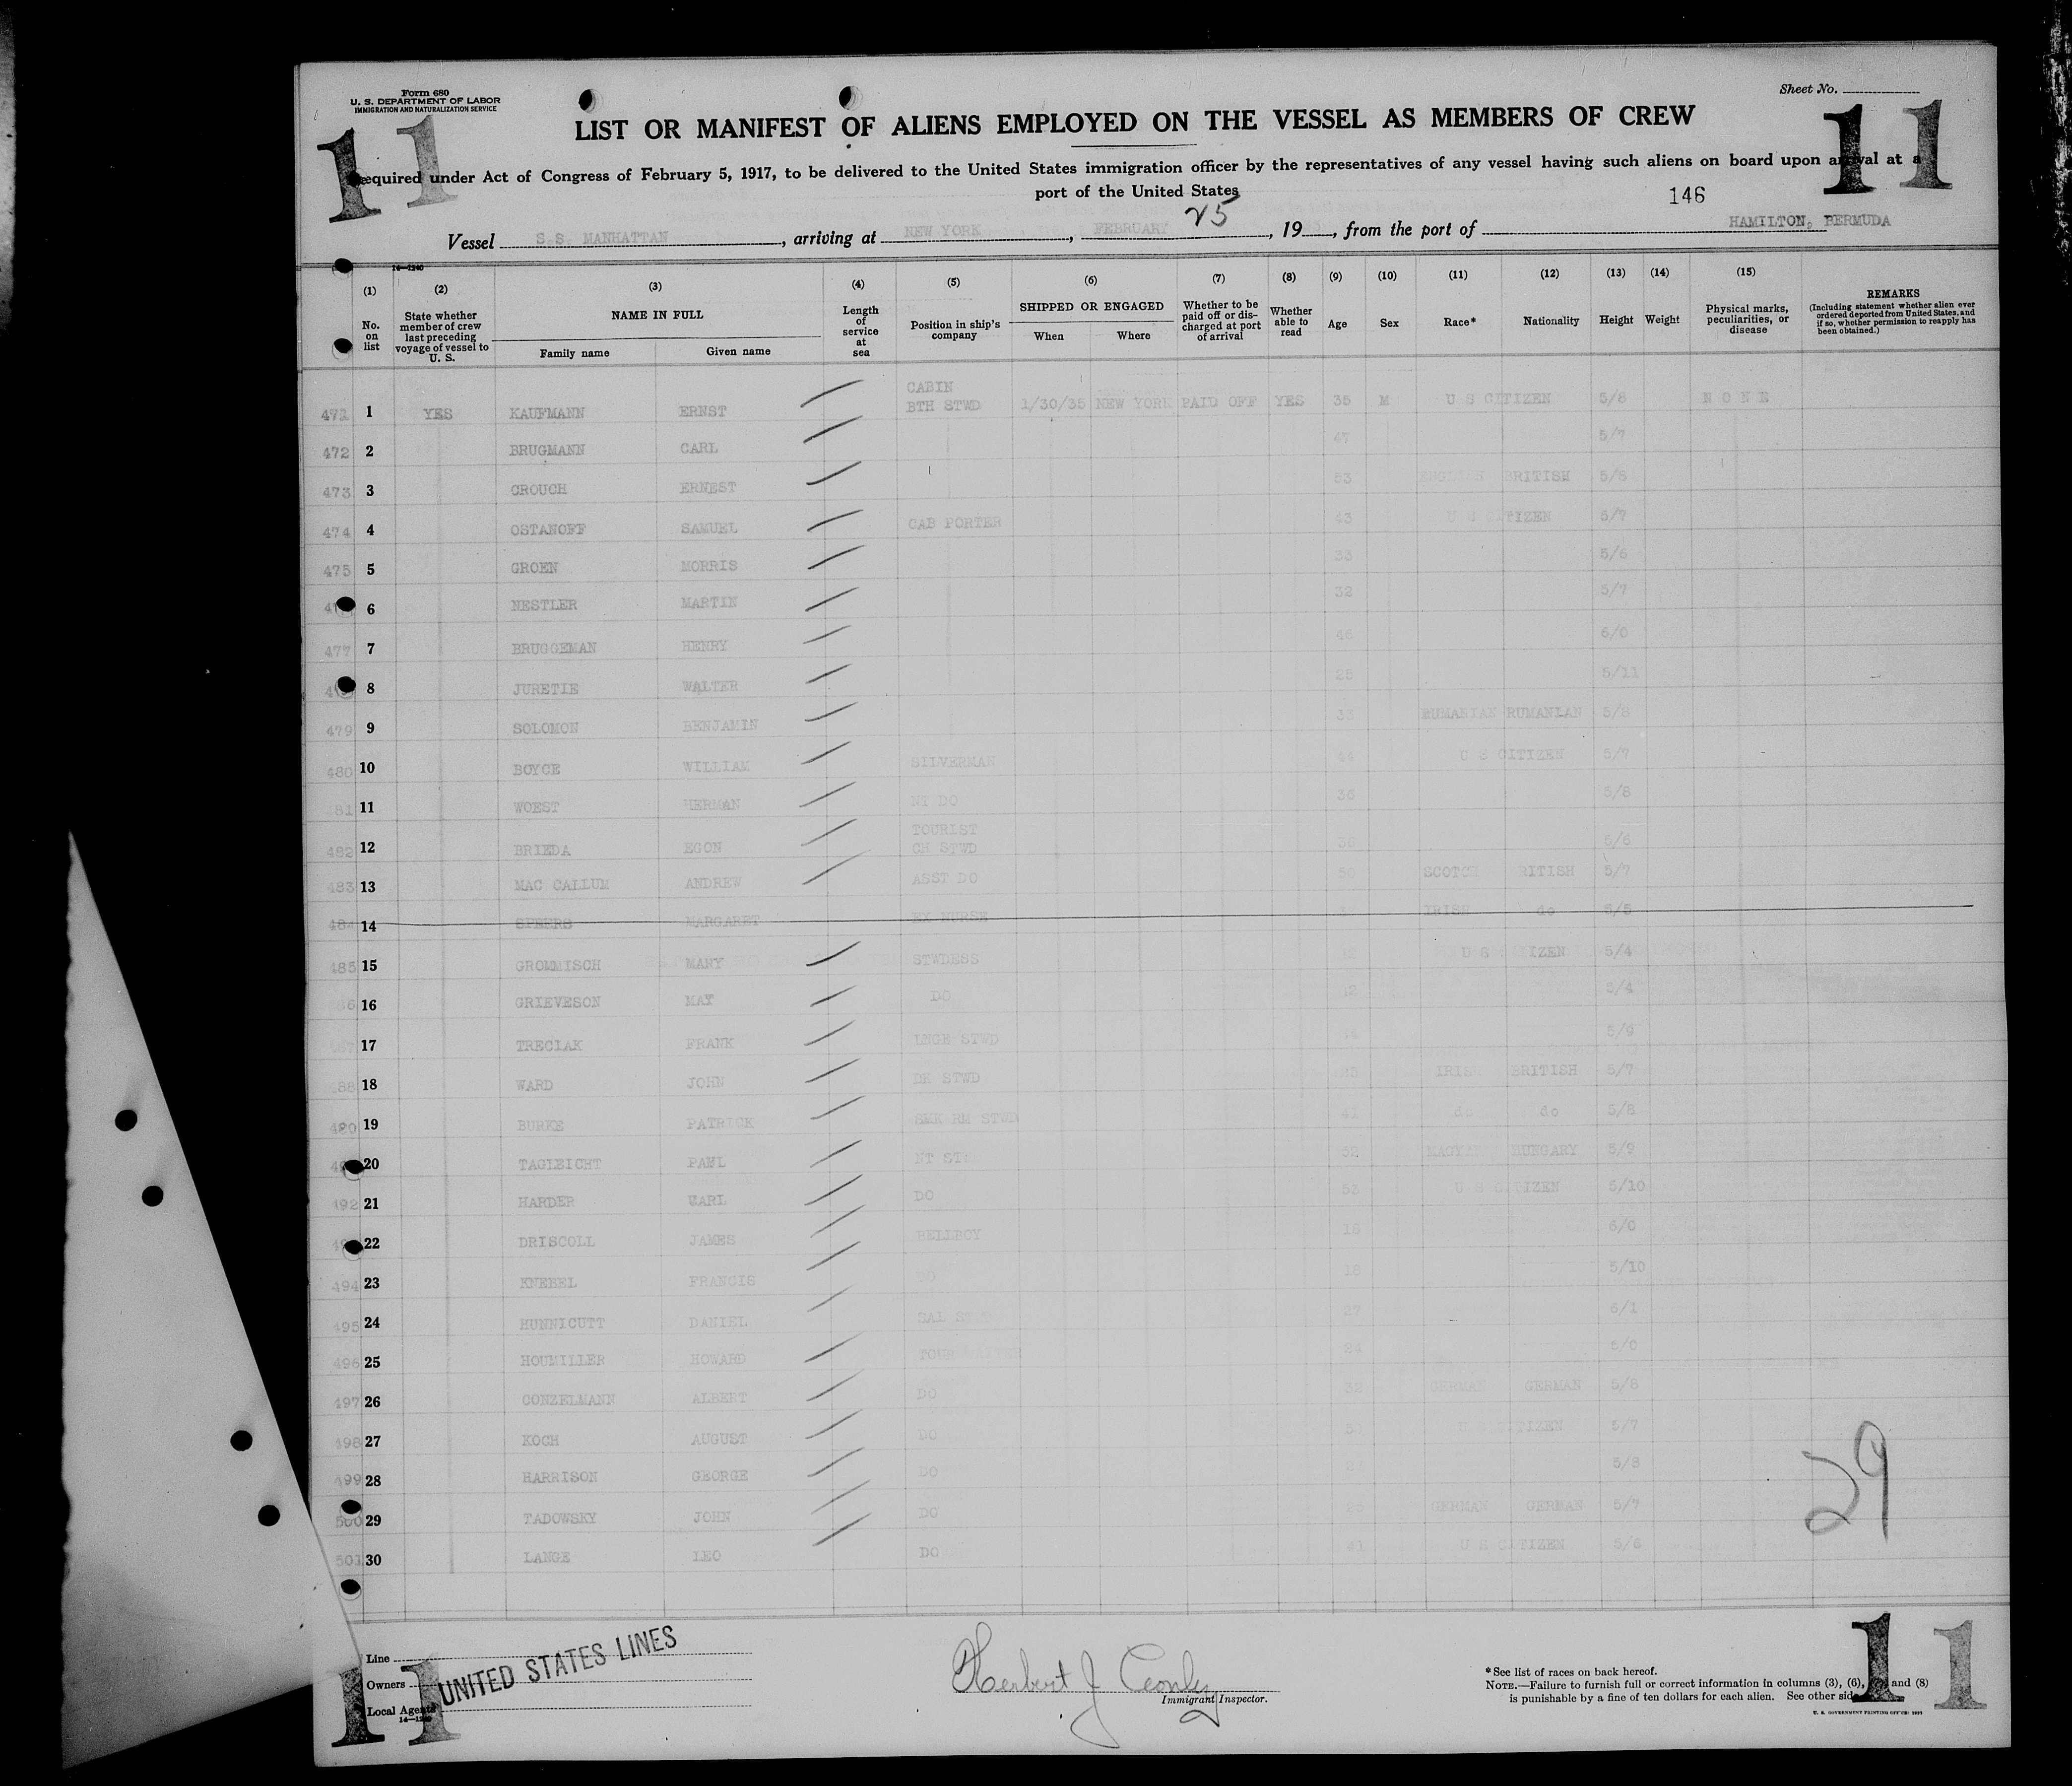 Form 680
U. S. DEPARTMENT OF LABOR
IMMIGRATION AND NATURALIZATION SERVICE
Sheet No.
11 11
LIST OR MANIFEST OF ALIENS EMPLOYED ON THE VESSEL AS MEMBERS OF CREW
Required under Act of Congress of February 5, 1917, to be delivered to the United States immigration officer by the representatives of any vessel having such aliens on board upon arrival at a
port of the United States
146
Vessel S.S. MANHATTAN, arriving at NEW YORK, FEBRUARY 25, 19, from the port of HAMILTON, BERMUDA
14—1240
(1) No. on list (2) State whether member of crew last preceding voyage of vessel to U. S. (3) NAME IN FULL Family name Given name (4) Length of service at sea (5) Position in ship's company (6) SHIPPED OR ENGAGED When Where (7) Whether to be paid off or discharged at port of arrival (8) Whether able to read (9) Age (10) Sex (11) Race* (12) Nationality (13) Height (14) Weight (15) Physical marks, peculiarities, or disease REMARKS (Including statement whether alien ever ordered deported from United States, and if so, whether permission to reapply has been obtained.)
471 1 YES KAUFMANN ERNST CABIN BTH STWD 1/30/35 NEW YORK PAID OFF YES 35 M U S CITIZEN 5/8 NONE
472 2 BRUGMANN CARL 47 5/7
473 3 CROUCH ERNEST 53 ENGLISH BRITISH 5/8
474 4 OSTANOFF SAMUEL CAB PORTER 43 U S CITIZEN 5/7
475 5 GROEN MORRIS 33 5/6
6 NESTLER MARTIN 32 5/7
477 7 BRUGGEMAN HENRY 46 6/0
8 JURETIE WALTER 25 5/11
479 9 SOLOMON BENJAMIN 33 RUMANIAN RUMANIAN 5/8
480 10 BOYCE WILLIAM SILVERMAN 44 U S CITIZEN 5/7
11 WOEST HERMAN NT DO 36 5/8
482 12 BRIEDA EGON TOURIST CH STWD 5/6
483 13 MAC CALLUM ANDREW ASST DO SCOTCH BRITISH 5/7
484 14 SPEERS MARGARET NURSE IRISH do 5/5
485 15 GROMMISCH MARY STWDESS U S CITIZEN 5/4
16 GRIEVESON MAY DO 5/4
17 TRECIAK FRANK LNGE STWD 5/9
18 WARD JOHN DK STWD IRISH BRITISH 5/7
19 BURKE PATRICK SMK RM STWD 41 do do 5/8
20 TAGLEICHT PAUL NT MAGYAR HUNGARY 5/9
492 21 HARDER CARL DO 53 U S CITIZEN 5/10
22 DRISCOLL JAMES BELLBOY 18 6/0
494 23 KNEBEL FRANCIS 18 5/10
495 24 HUNNICUTT DANIEL SAL 27 6/1
496 25 HOUMILLER HOWARD TOUR 24
497 26 CONZELMANN ALBERT DO 32 GERMAN GERMAN 5/8
498 27 KOCH AUGUST DO U S CITIZEN 5/7
499 28 HARRISON GEORGE DO 5/8
500 29 TADOWSKY JOHN DO GERMAN GERMAN 5/7
501 30 LANGE LEO DO 41 U S CITIZEN 5/6
29
Line
Owners
Local Agents
UNITED STATES LINES
Herbert J
Immigrant Inspector.
*See list of races on back hereof.
NOTE.—Failure to furnish full or correct information in columns (3), (6), and (8)
is punishable by a fine of ten dollars for each alien. See other side
U. S. GOVERNMENT PRINTING OFFICE
11 11